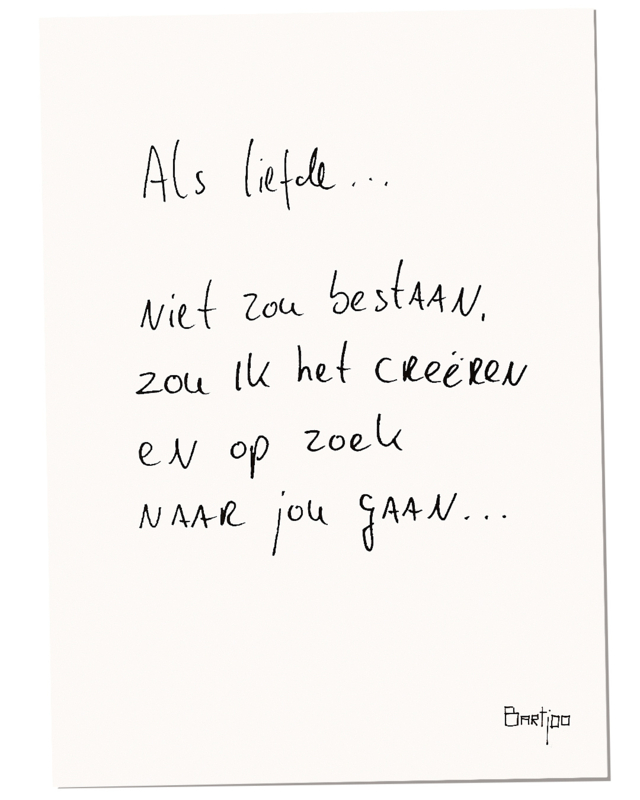 Als liefde...
Niet zou bestAAN,
zou Ik het CReëReN
eN op zoek
NAAR jou gAAN...
Bartjoo